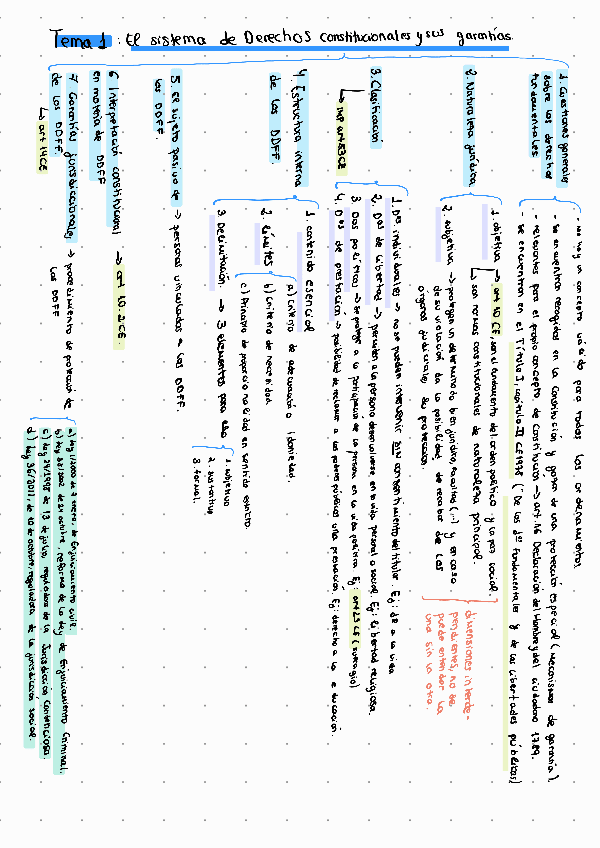 Tema 1: El sistema de Derechos constitucionales y sus garantías.
1. Cuestiones generales
sobre los derechos
fundamentales
- no hay un concepto válido para todos los ordenamientos
- se encuentran recogidos en la Constitución y gozan de una protección especial (mecanismos de garantía).
- relevantes para el propio concepto de Constitución → art. 16 Declaración del Hombre y del ciudadano 1789.
- se encuentran en el Título I, capítulo II CE 1978 ("De los dº fundamentales y de las libertades públicas)
2. Naturaleza jurídica
1. objetiva → art 10 CE, son el fundamento del orden político y la paz social.
↳ son normas constitucionales de naturaleza principal.
2. subjetiva → protegen un determinado bien jurídico, facultas (...) y en caso
de su violación da la posibilidad de recabar de los
órganos judiciales su protección.
dimensiones interde-
pendientes, no se
puede entender la
una sin la otra.
3. Clasificación
↳ art 53 CE
1. Dos individuales → no se pueden intervenir sin consentimiento del titular. Ej: dº a la vida
2. Dos de libertad → permiten a la persona desenvolverse en la vida personal o social. Ej: libertad religiosa.
3. Dos políticos → se protege a la participación de la persona en la vida política. Ej: art 23 CE (sufragio)
4. Dos de prestación → posibilidad de reclamar a los poderes públicos una prestación. Ej: derecho a la educación.
4. Estructura interna
de los DDFF.
1. contenido esencial
2. Límites
a) Criterio de adecuación o idoneidad.
b) Criterio de necesidad.
c) Principio de proporcionalidad en sentido estricto.
3. Delimitación → 3 elementos para ello
1. objetivo
2. sustantivo
3. formal.
5. El sujeto pasivo de
los DDFF.
→ personas vinculadas a los DDFF.
6 Interpretación constitucional
en materia de DDFF
→ art 10.2 CE.
7 Garantías jurisdiccionales
de los DDFF.
↳ art 14 CE
→ procedimiento de protección de
los DDFF
a) ley 1/2000 de 7 enero, de Enjuiciamiento civil.
b) ley 38/2002 de 24 octubre, reforma de la ley de Enjuiciamiento Criminal.
c) ley 29/1998 de 13 de julio, reguladora de la Jurisdicción Contenciosa.
d) ley 36/2011, de 10 de octubre, reguladora de la jurisdicción social.